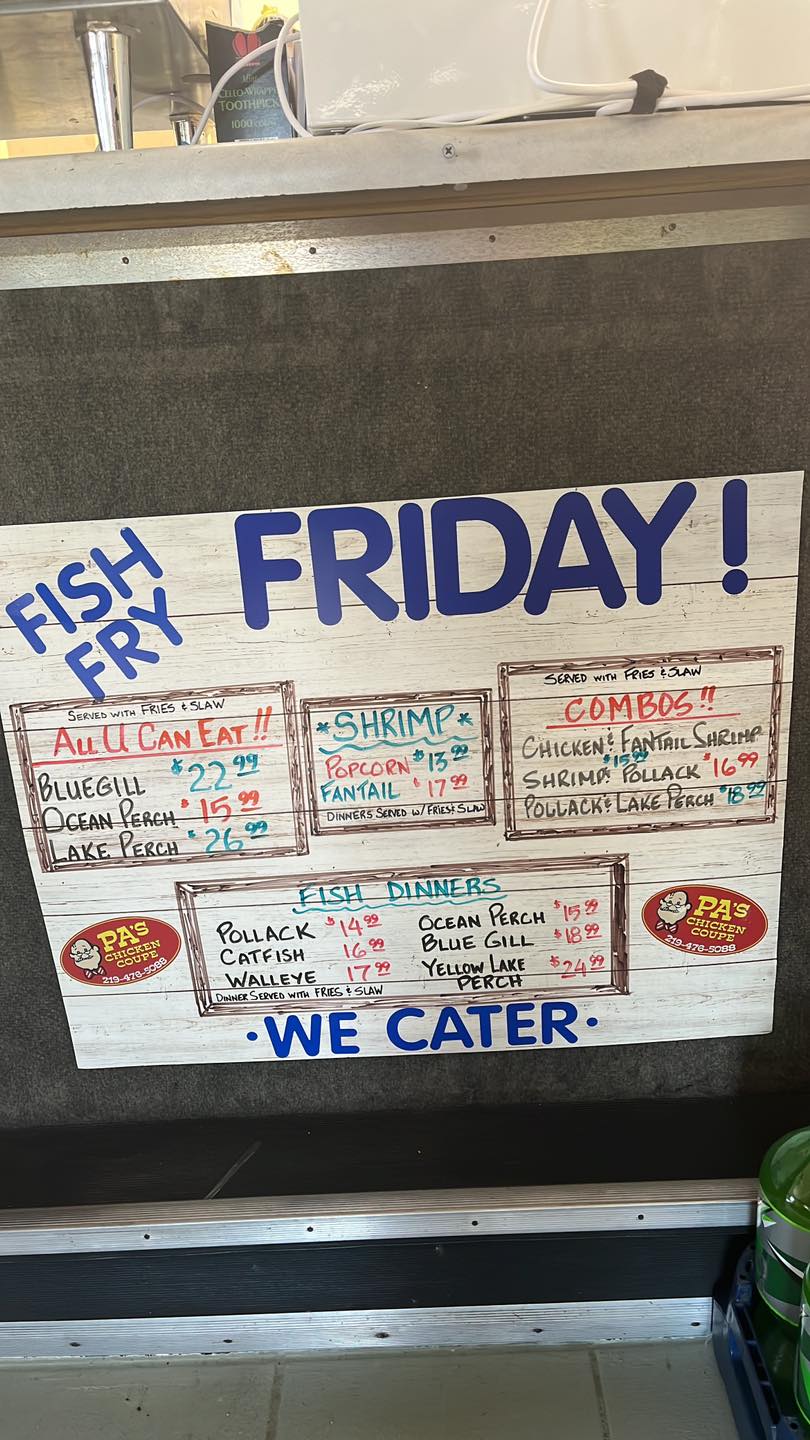 CELLO-WRAPPED
TOOTHPICKS
1000
FISH
FRY
FRIDAY!
SERVED WITH FRIES & SLAW
ALL U CAN EAT!!
BLUEGILL $22.99
OCEAN PERCH $15.99
LAKE PERCH $26.99
*SHRIMP*
POPCORN $13.99
FANTAIL $17.99
DINNERS SERVED W/ FRIES & SLAW
SERVED WITH FRIES & SLAW
COMBOS!!
CHICKEN & FANTAIL SHRIMP
$15.99
SHRIMP & POLLACK $16.99
POLLACK & LAKE PERCH $18.99
FISH DINNERS
POLLACK $14.99
CATFISH 16.99
WALLEYE 17.99
OCEAN PERCH $15.99
BLUE GILL $18.99
YELLOW LAKE PERCH $24.99
DINNER SERVED WITH FRIES & SLAW
PA'S
CHICKEN
COUPE
219-476-5088
PA'S
CHICKEN
COUPE
219-476-5088
·WE CATER·